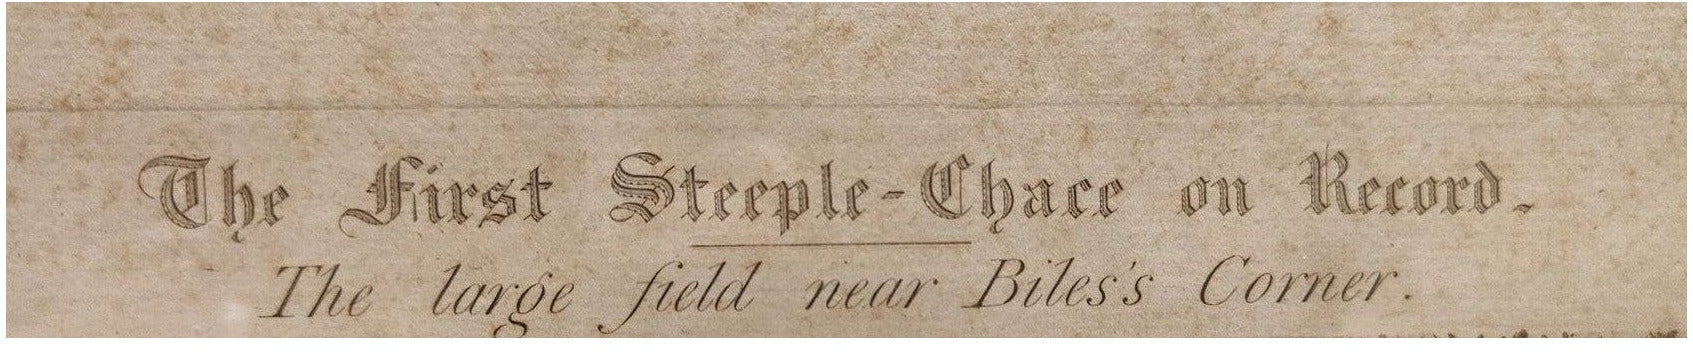 The First Steeple-Chace on Record.
The large field near Biles's Corner.